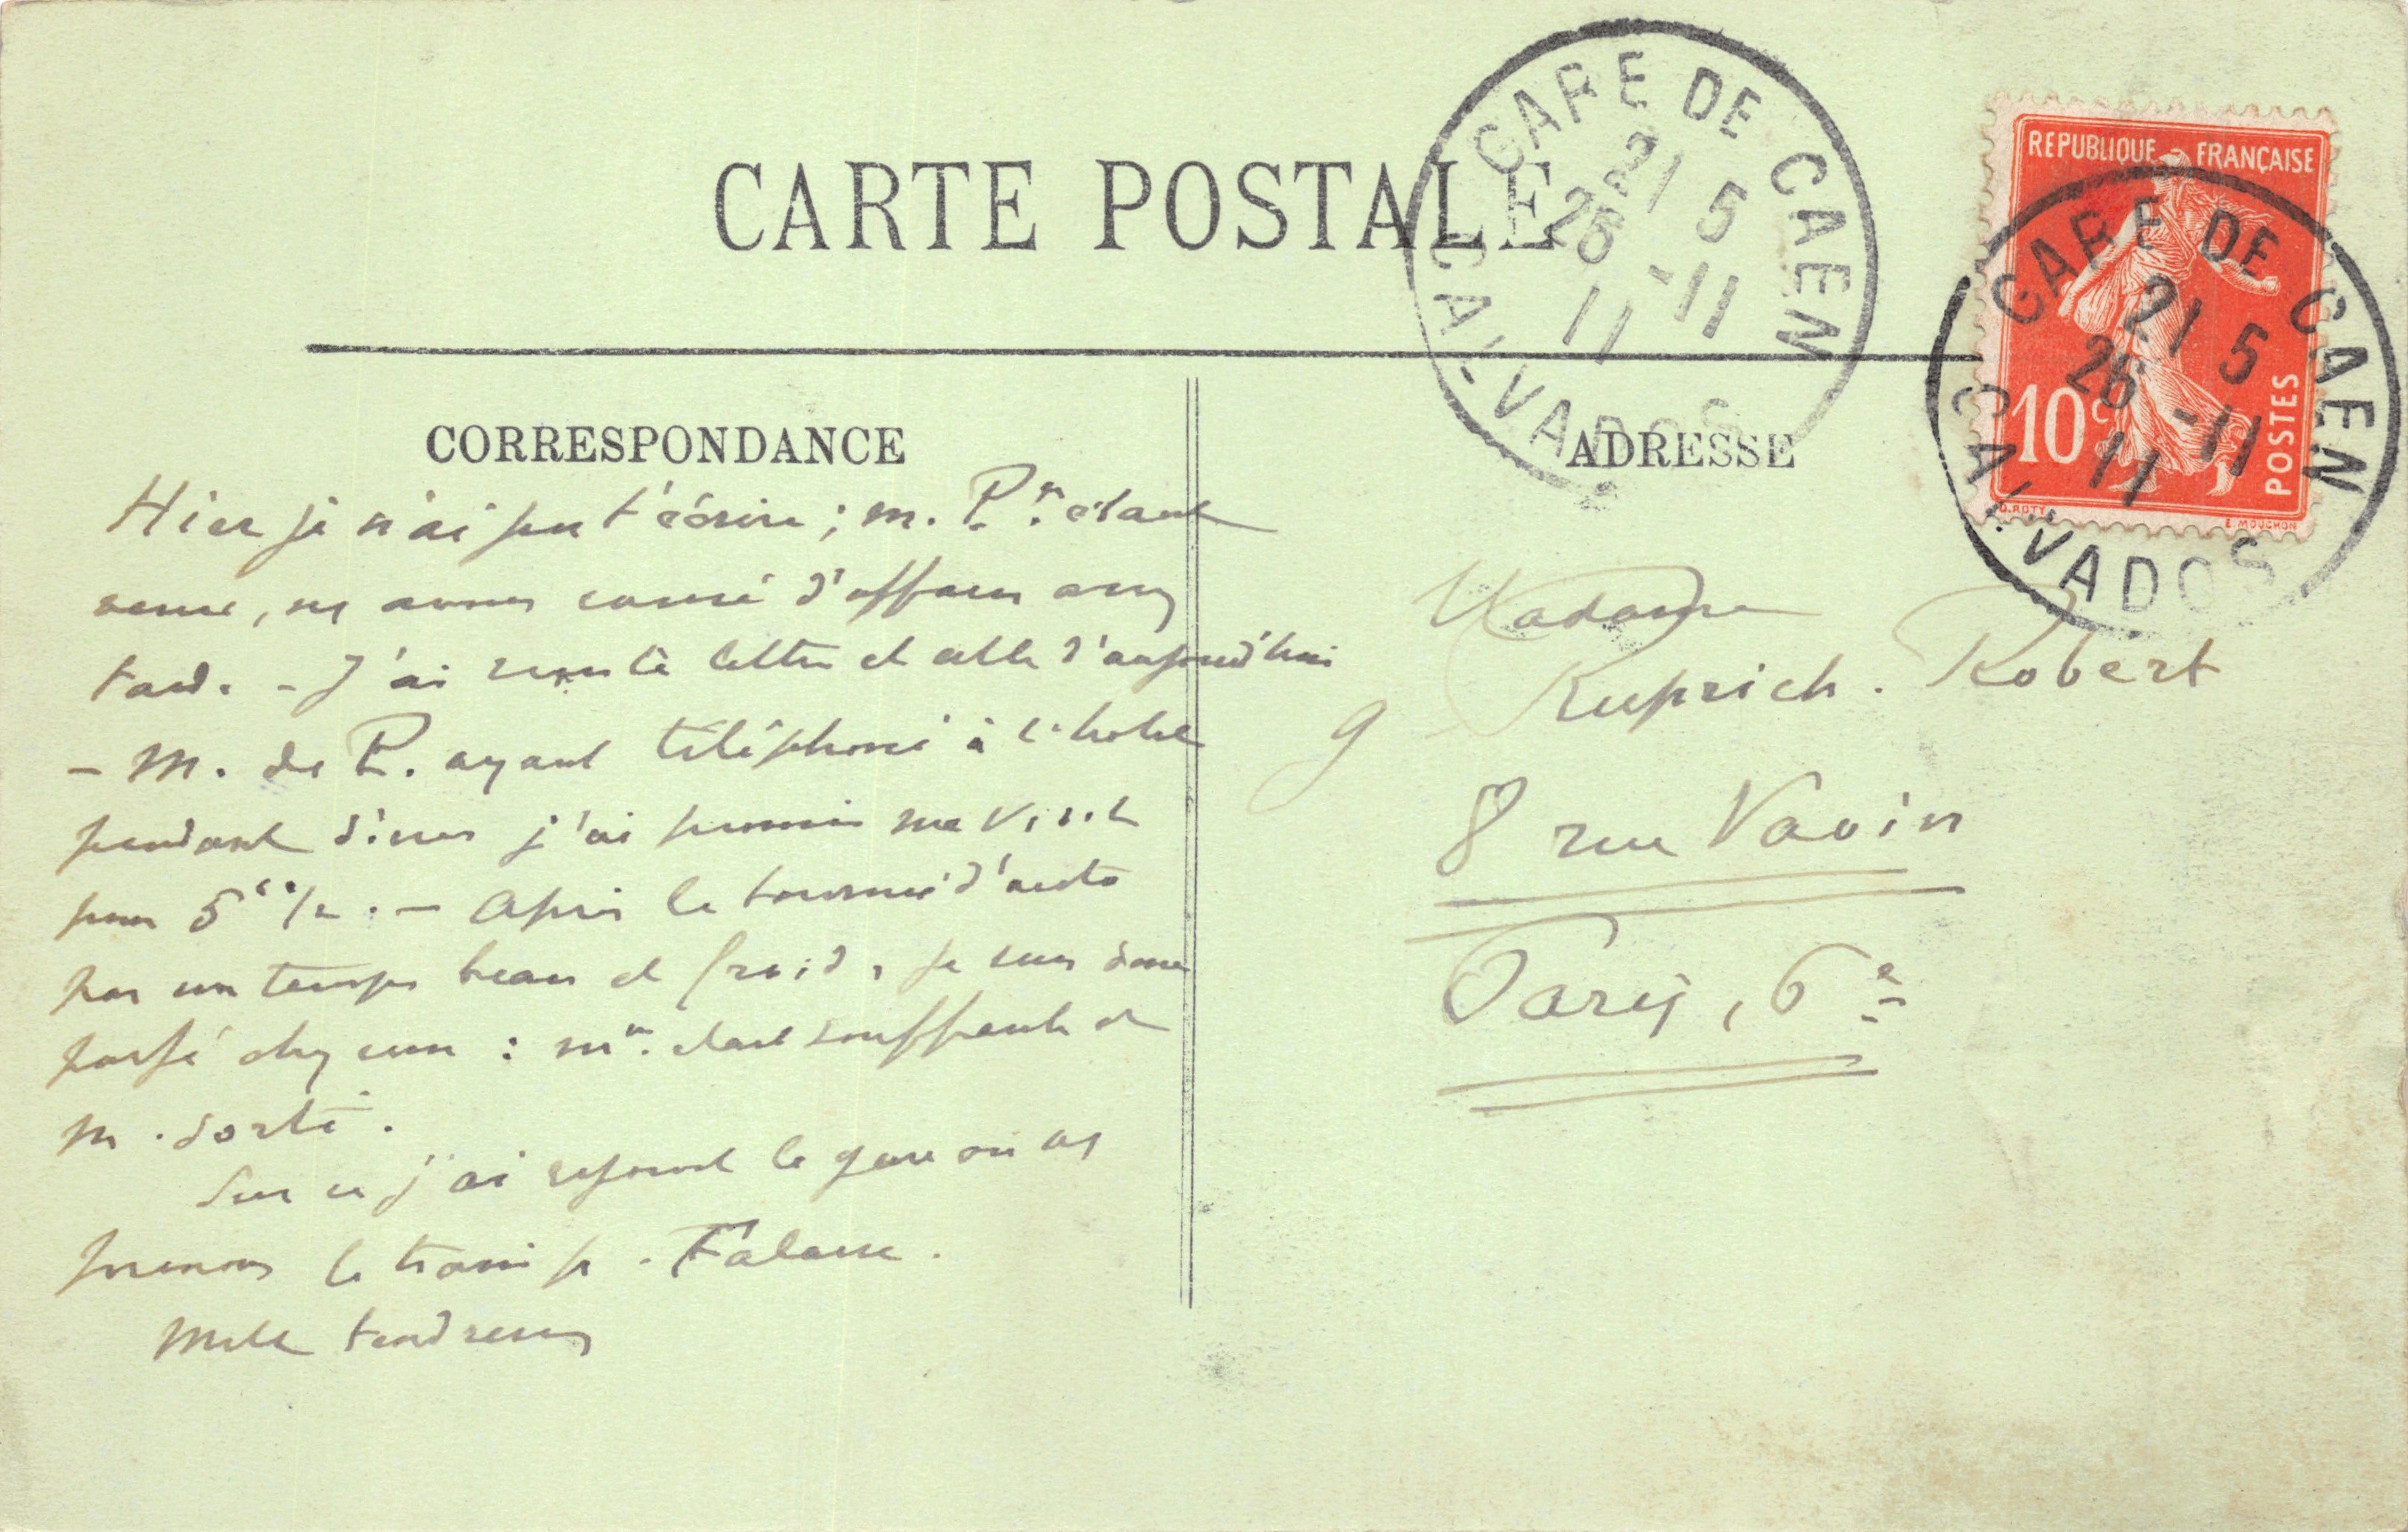 CARTE POSTALE
GARE DE CAEN
21 5
26 -11
11
CALVADOS
REPUBLIQUE FRANÇAISE
10c
POSTES
O. ROTY
E. MOUCHON
GARE DE CAEN
21 5
26 -11
11
CALVADOS
CORRESPONDANCE
Hier je n'ai pu t'écrire ; M. Pr. étant
venu, ns avons causé d'affaires assez
tard. - J'ai reçu ta lettre et celle d'aujourd'hui
- M. de P. ayant téléphoné à l'hotel
pendant diner j'ai promis ma visite
pour 5 h 1/2. - Après la tournée d'auto
par un temps beau et froid, je suis donc
passé chez eux : Me. étant souffrante et
M. sorti.
Sur ce j'ai rejoint la gare où ns
prenons le train p. Falaise.
Mille tendresses
ADRESSE
Madame
Ruprich. Robert
8 rue Vavin
Paris, 6e